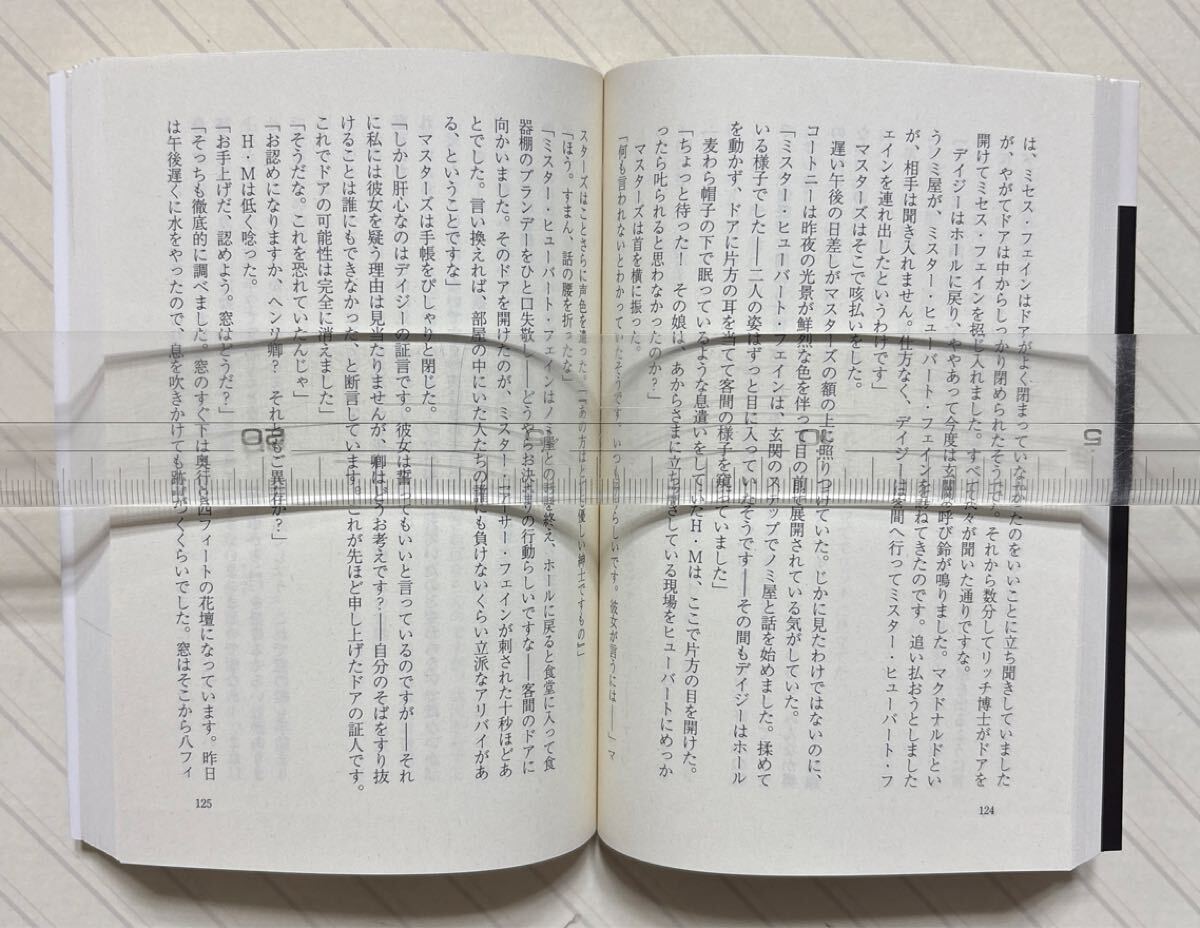 は、ミセス・フェインはドアがよく閉まっていなかったのをいいことに立ち聞きしていました
が、やがてドアは中からしっかり閉められたそうで。それから数分してリッチ博士がドアを
開けてミセス・フェインを招じ入れました。すべて我々が聞いた通りですな。
デイジーはホールに戻り、ややあって今度は玄関の呼び鈴が鳴りました。マクドナルドとい
うノミ屋が、ミスター・ヒューバート・フェインを訪ねてきたのです。追い払おうとしました
が、相手は聞き入れません。仕方なく、デイジーは客間へ行ってミスター・ヒューバート・フ
ェインを連れ出したというわけです」
マスターズはそこで咳払いをした。
遅い午後の日差しがマスターズの額の上に照りつけていた。じかに見たわけではないのに、
コートニーは昨夜の光景が鮮烈な色を伴って目の前で展開されている気がしていた。
「ミスター・ヒューバート・フェインは、玄関のステップでノミ屋と話を始めました。揉めて
いる様子でした――二人の姿はずっと目に入っていたそうです――その間もデイジーはホール
を動かず、ドアに片方の耳を当てて客間の様子を窺っていました」
麦わら帽子の下で眠っているような息遣いをしていたH・Mは、ここで片方の目を開けた。
「ちょっと待った! その娘は、あからさまに立ち聞きしている現場をヒューバートにめっか
ったら叱られると思わなかったのか?」
マスターズは首を横に振った。
「何も言われないとわかっていたそうです。いつも らしいです。彼女が言うには――」マ
スターズはことさらに声色を遣った。「『あの方はとても優しい紳士ですもの』」
「ほう。すまん、話の腰を折ったな」
「ミスター・ヒューバート・フェインはノミ屋との 話を終え、ホールに戻ると食堂に入って食
器棚のブランデーをひと口失敬し――どうやらお決まりの行動らしいですな――客間のドアに
向かいました。そのドアを開けたのが、ミスター・アーサー・フェインが刺された十秒ほどあ
とでした。言い換えれば、部屋の中にいた人たちの誰にも負けないくらい立派なアリバイがあ
る、ということですな」
マスターズは手帳をぴしゃりと閉じた。
「しかし肝心なのはデイジーの証言です。彼女は誓ってもいいと言っているのですが――それ
に私には彼女を疑う理由は見当たりませんが、卿はどうお考えです?――自分のそばをすり抜
けることは誰にもできなかった、と断言しています。これが先ほど申し上げたドアの証人です。
これでドアの可能性は完全に消えました」
「そうだな。これを恐れていたんじゃ」
「お認めになりますか、ヘンリ卿? それともご異存が?」
H・Mは低く唸った。
「お手上げだ、認めよう。窓はどうだ?」
「そっちも徹底的に調べました。窓のすぐ下は奥行き四フィートの花壇になっています。昨日
は午後遅くに水をやったので、息を吹きかけても跡がつくくらいでした。窓はそこから八フィ
124
125